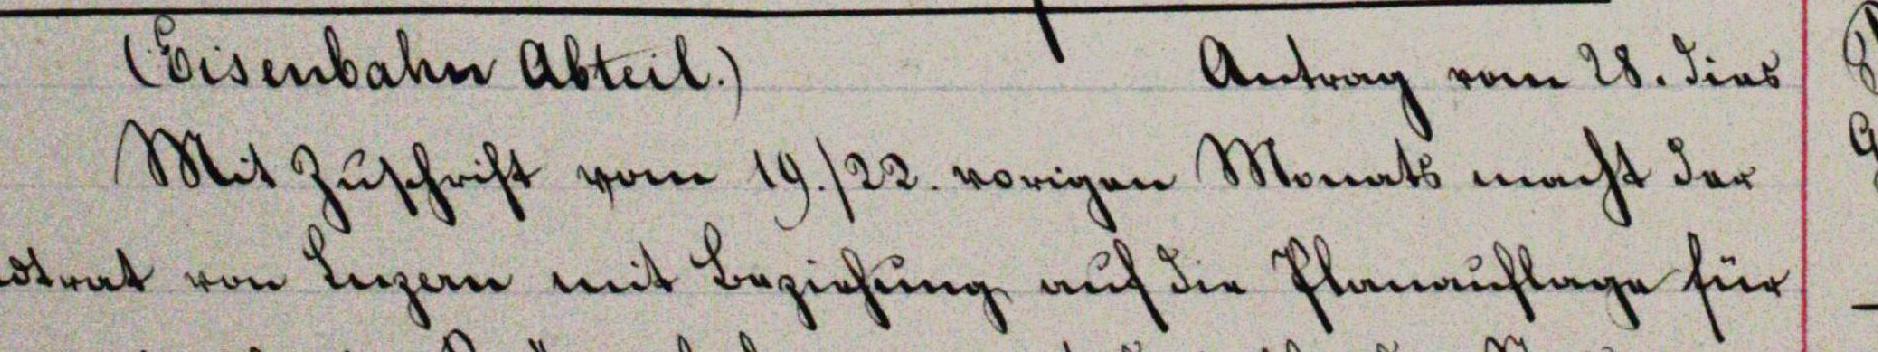 (Eisenbahn Abteil.) Antrag vom 28. dies
Mit Zuschrift vom 19./22. vorigen Monats macht der
dtrat von Luzern mit Beziehung auf die Planauflage für